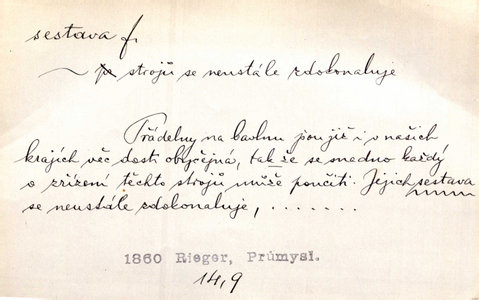 sestava f.
~ strojů se neustále zdokonaluje
Přádelny na bavlnu jsou již i v našich
krajích věc dosti obyčejná, tak že se snadno každý
o zřízení těchto strojů může poučiti. Jejich sestava
se neustále zdokonaluje, .......
1860 Rieger, Průmysl.
14,9